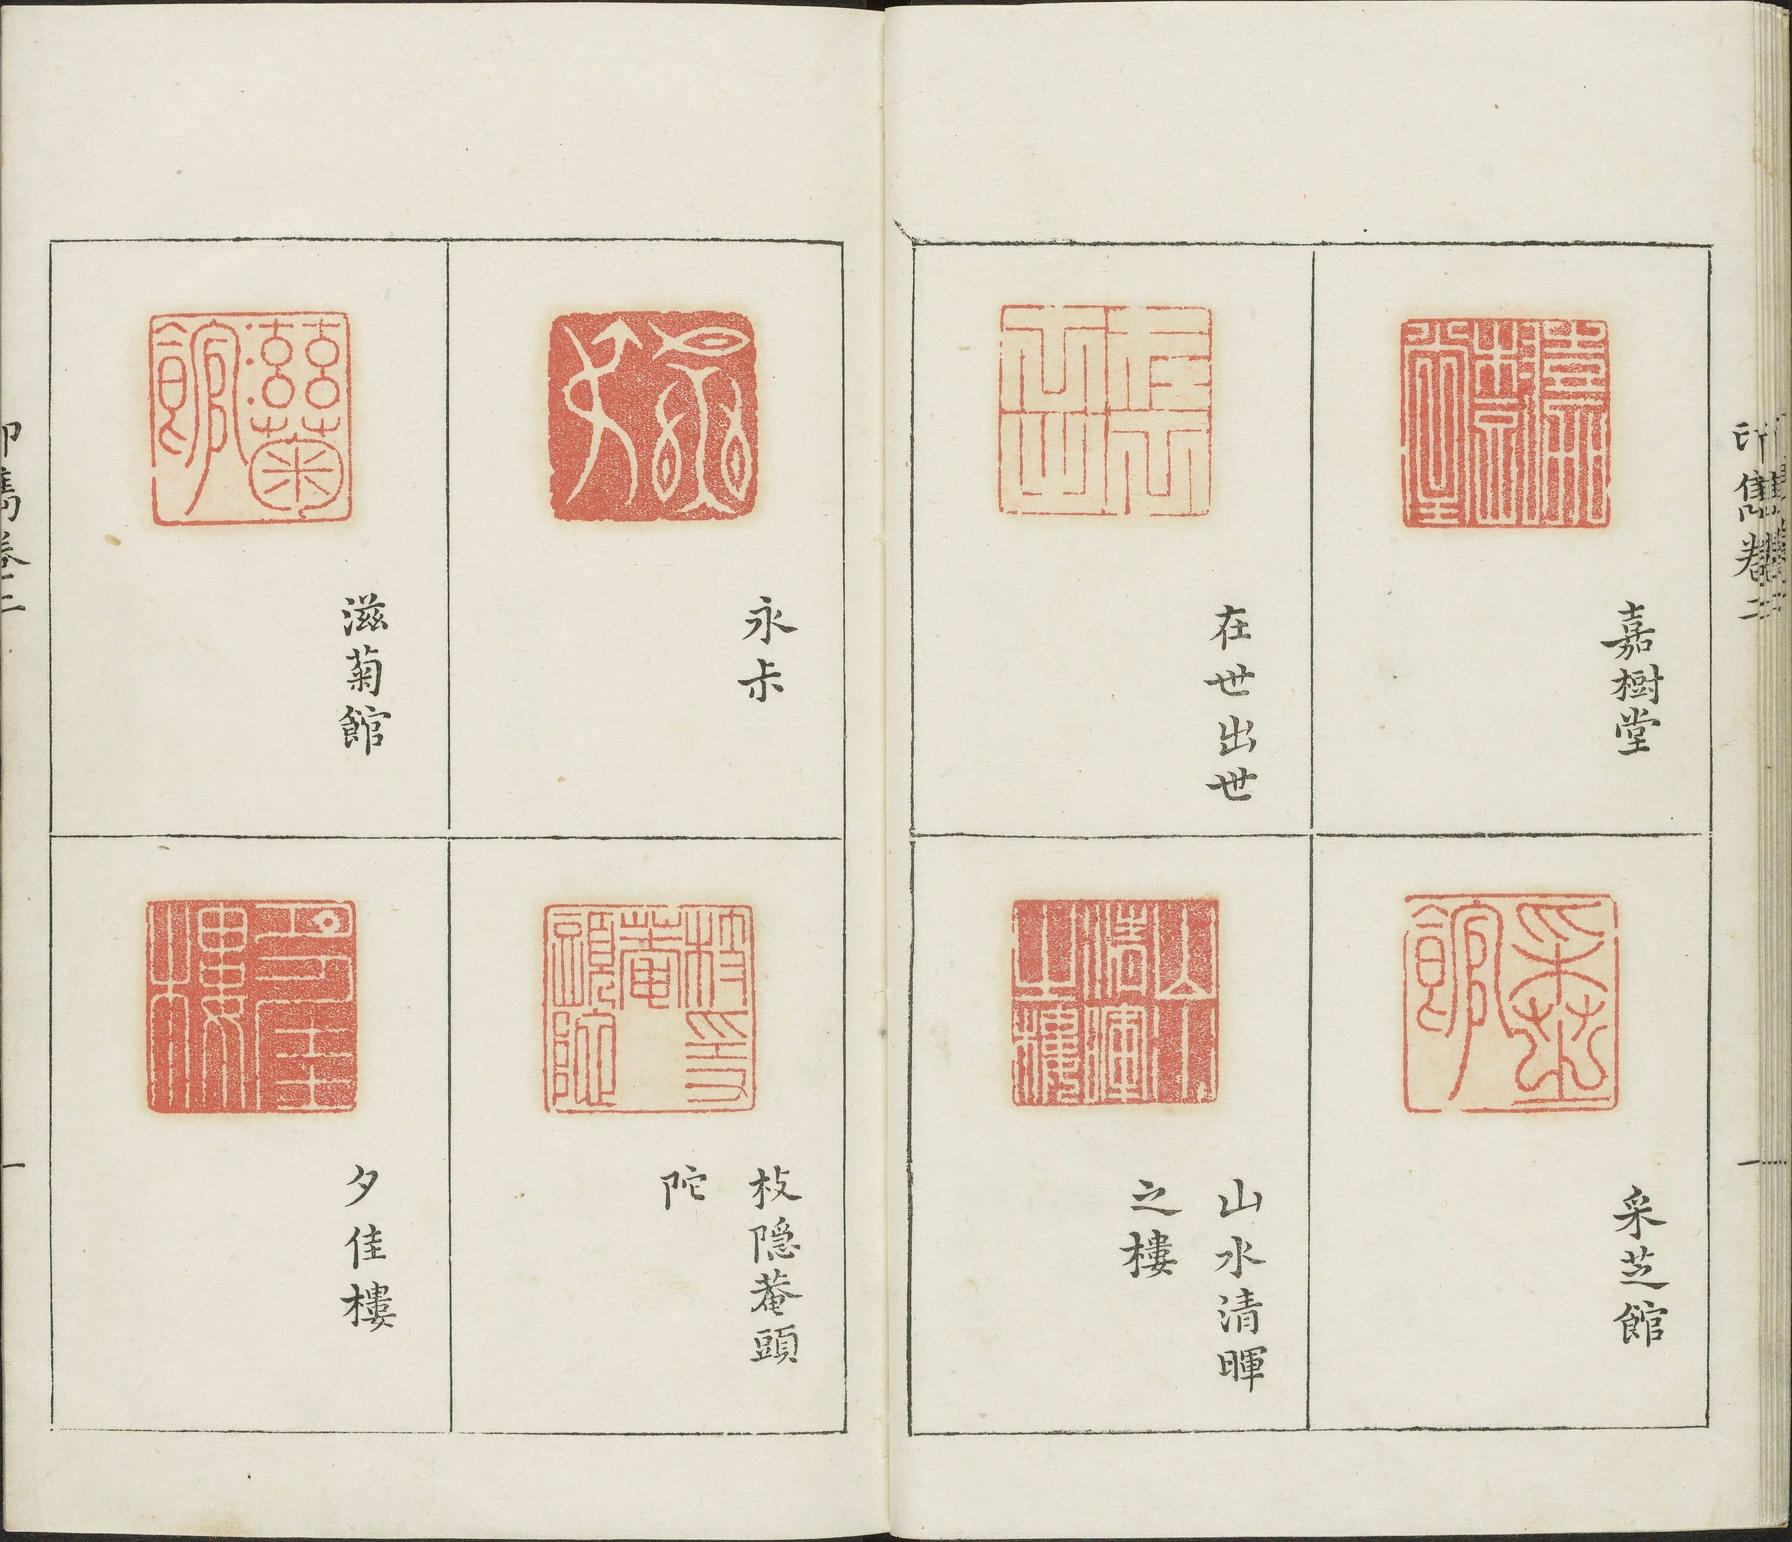 印雋卷二
嘉樹堂
采芝館
在世出世
山水清暉
之樓
永尗
枝隱菴頭
陀
滋菊館
夕佳樓
印雋卷二
一